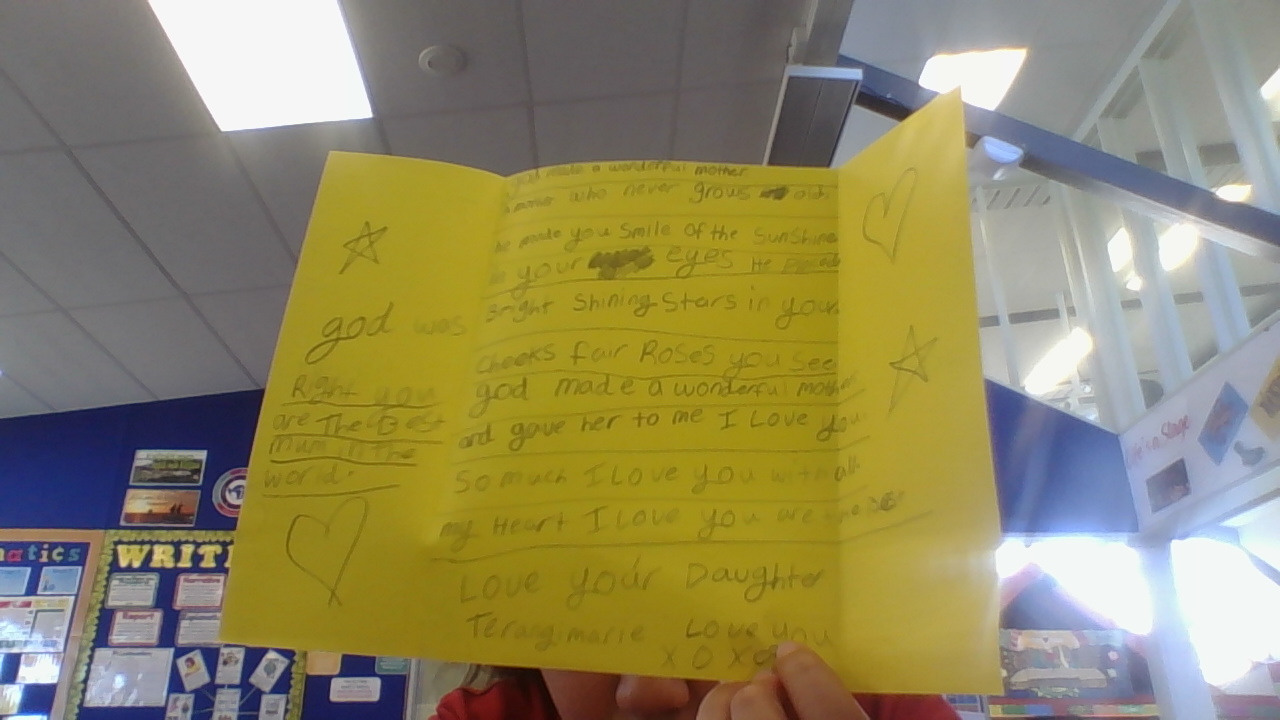 god was
Right you
are The Best
Mum in the
world.
god made a wonderful mother
a mother who never grows old.
he made you smile of the sunshine
in your eyes He
Bright shining stars in your
cheeks fair Roses you see
god made a wonderful mother
and gave her to me I Love you
So much I Love you with all
my Heart I Love you are the
Love your Daughter
Terangimarie Love you
X O X O
WRITI
atics
Narrative
Report
Life's a Stage